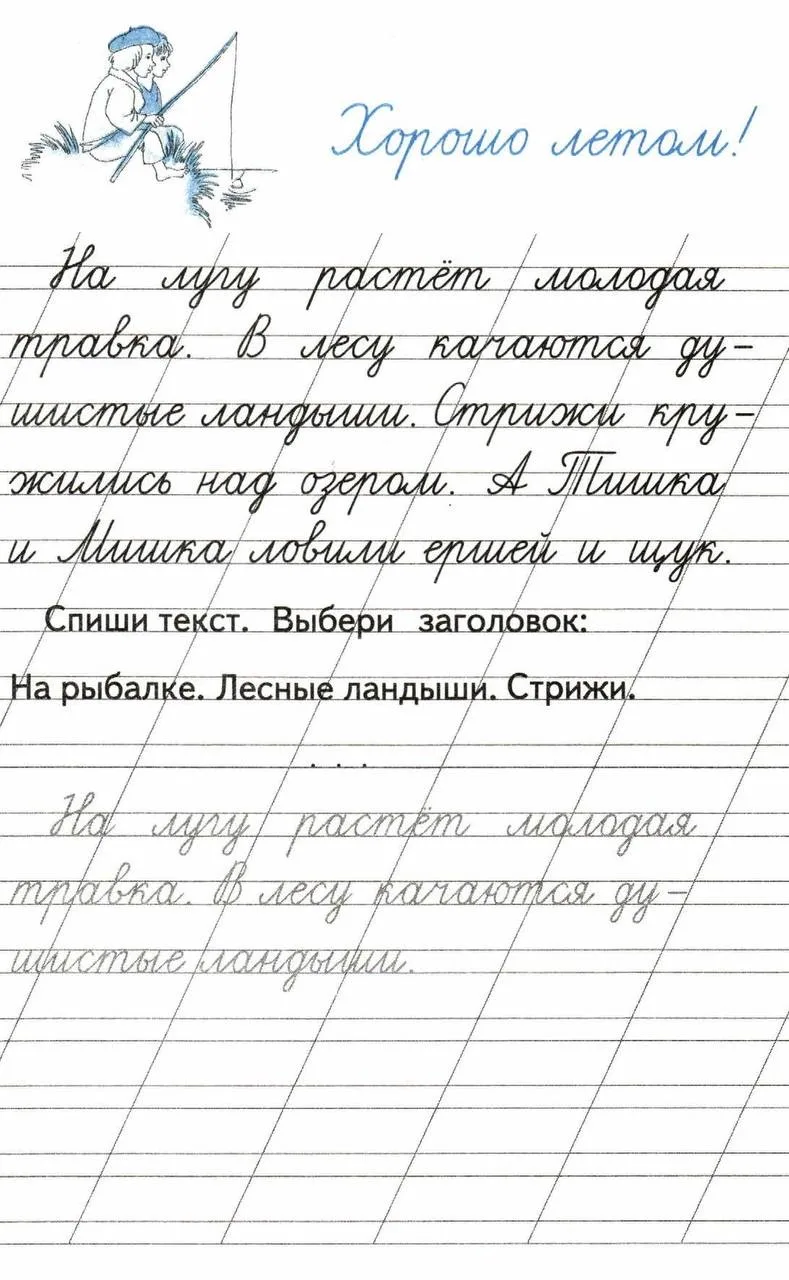 Хорошо летом!
На лугу растёт молодая
травка. В лесу качаются ду-
шистые ландыши. Стрижи кру-
жились над озером. А Тишка
и Мишка ловили ершей и щук.
Спиши текст. Выбери заголовок:
На рыбалке. Лесные ландыши. Стрижи.
. . .
На лугу растёт молодая
травка. В лесу качаются ду-
шистые ландыши.